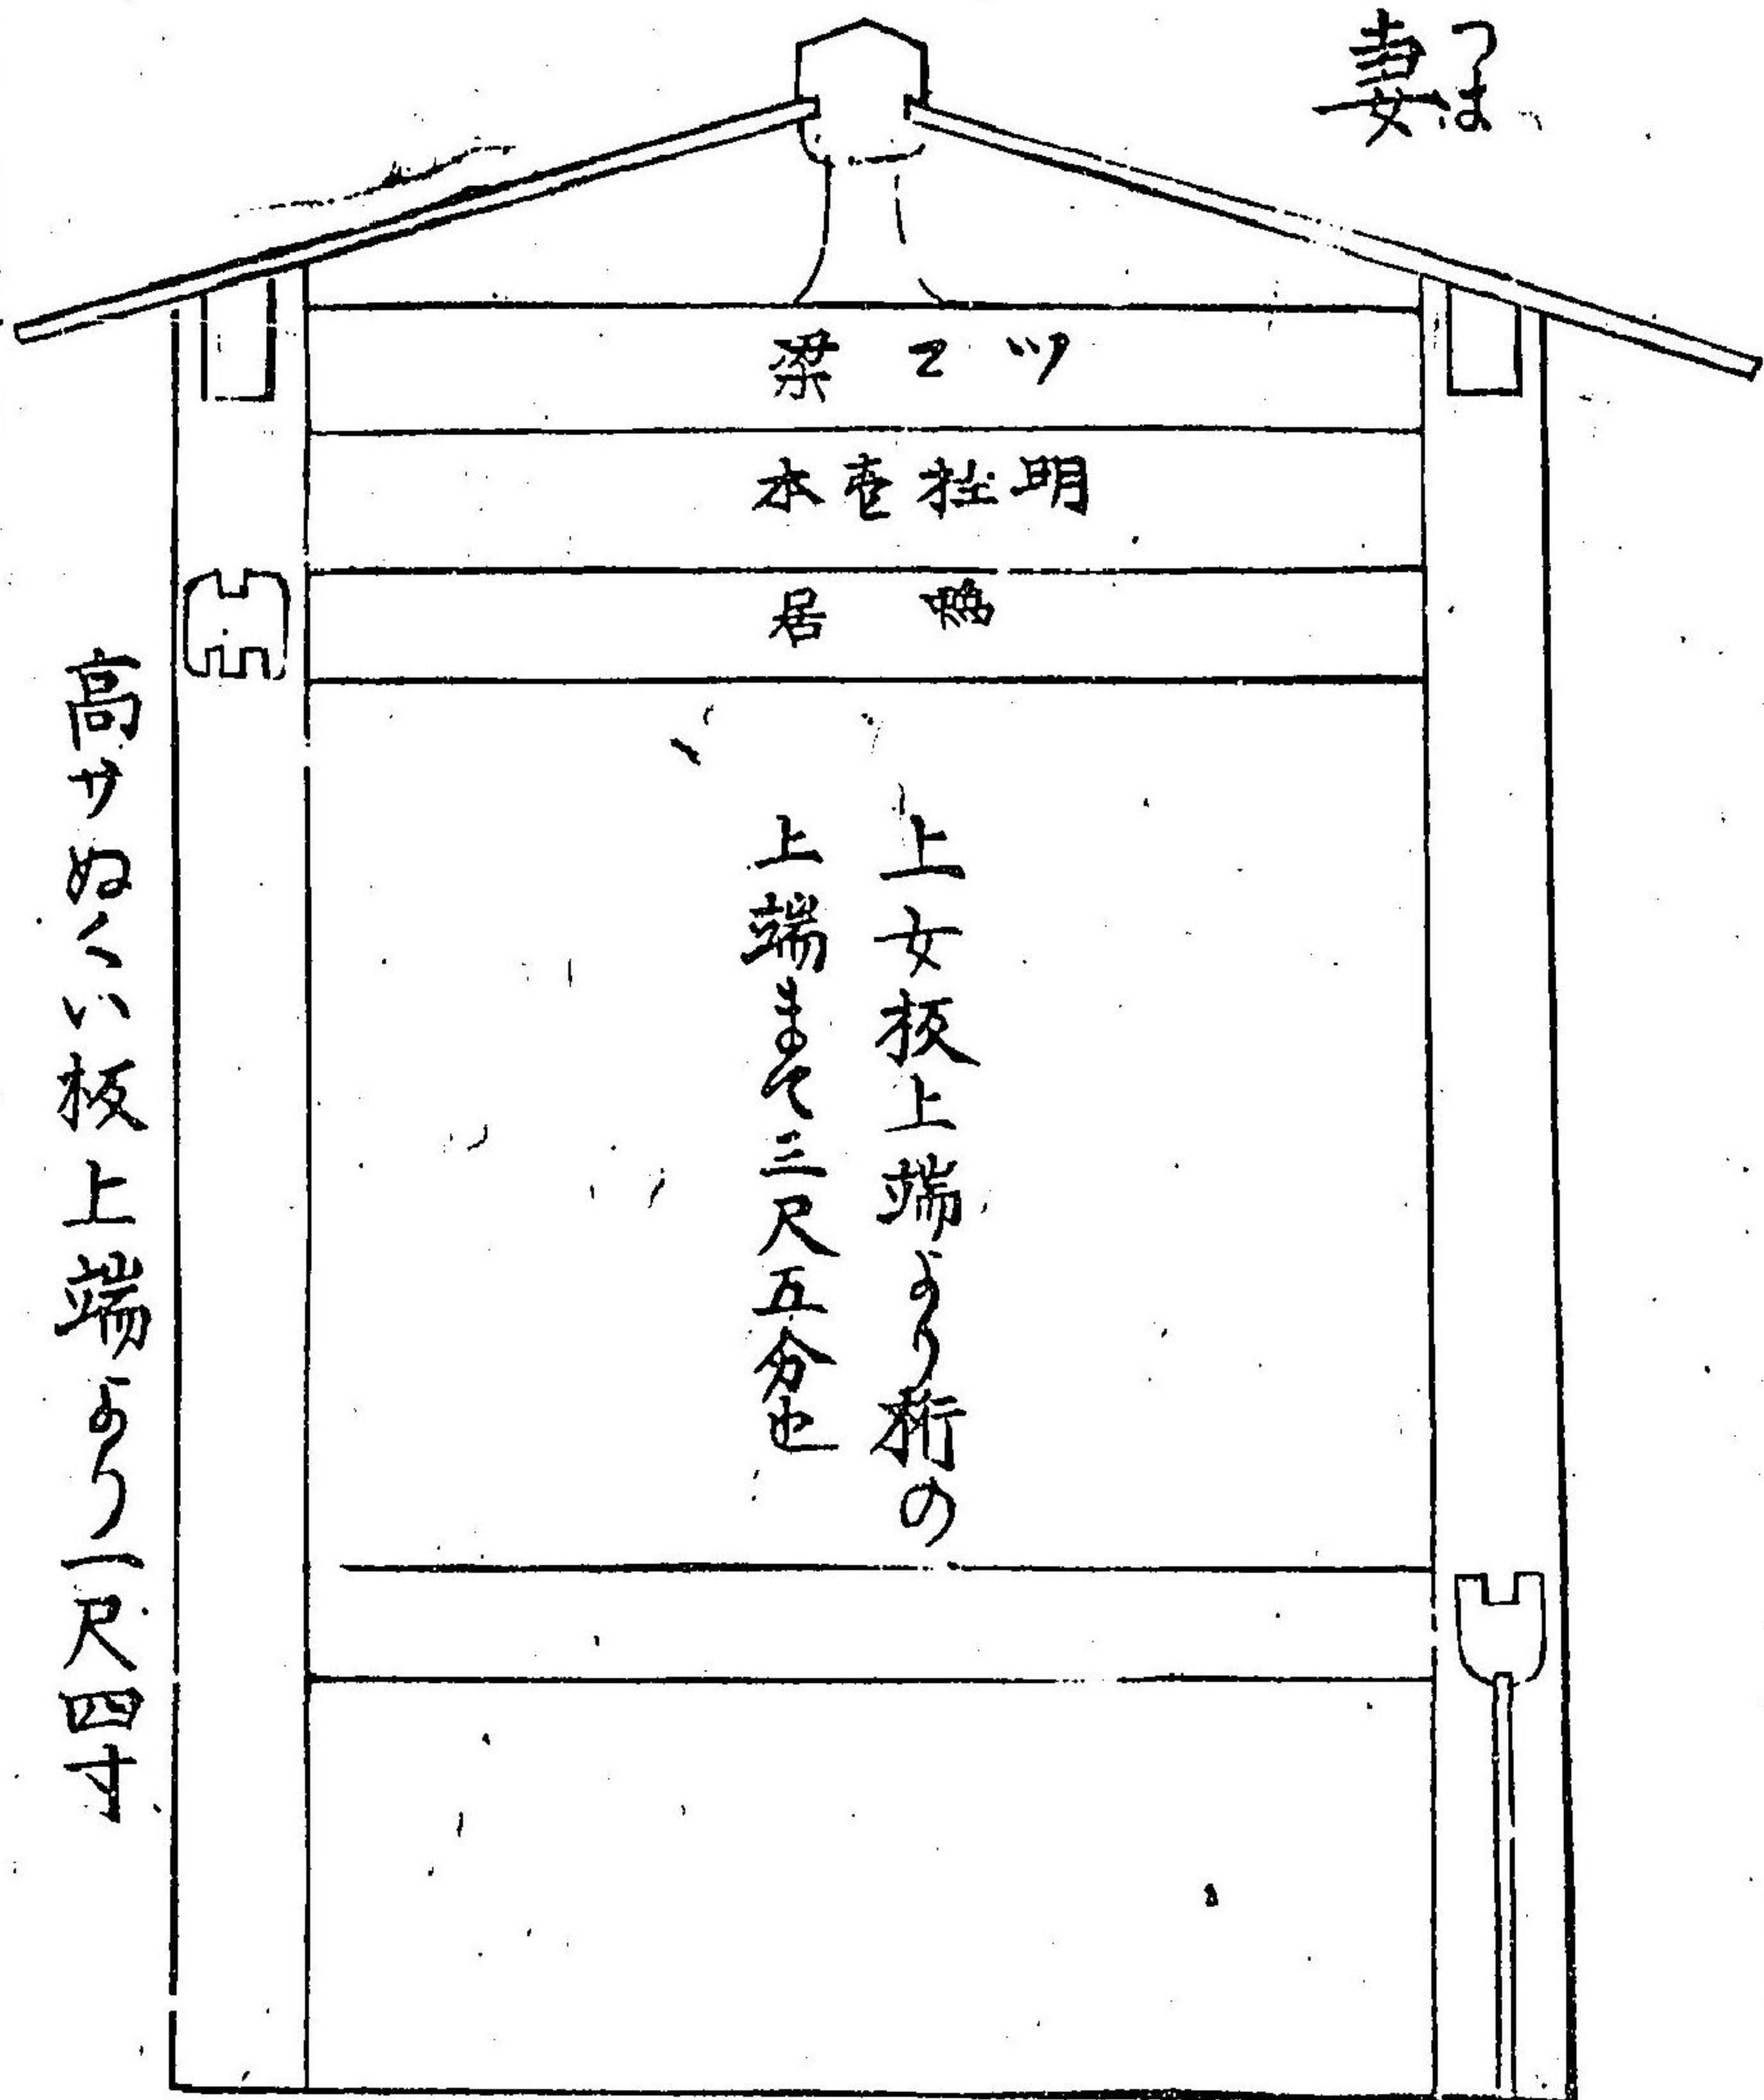 妻
つは
ツマ梁
明柱壱本
鴨居
上女板上端より桁の
上端まて三尺五分也
高サぬくい板上端より一尺四寸